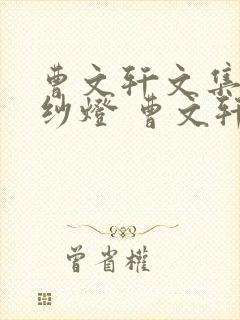 曹文轩文集
纱燈 曹文轩
曾省權